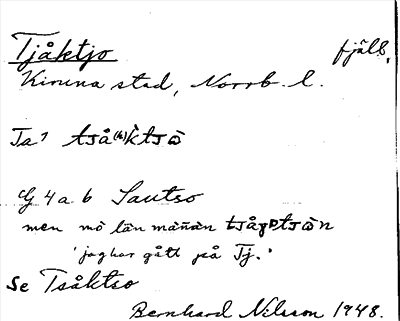 Tjåktjo fjäll,
Kiruna stad, Norrb. l.
Ta 7 tjå(h)ktjɷ̀
G 4 a b Sautso
men mò län màñàn tjåggtjɷ̀n
'jag har gått på Tj.'
Se Tsåktso
Bernhard Nilsson 1948.